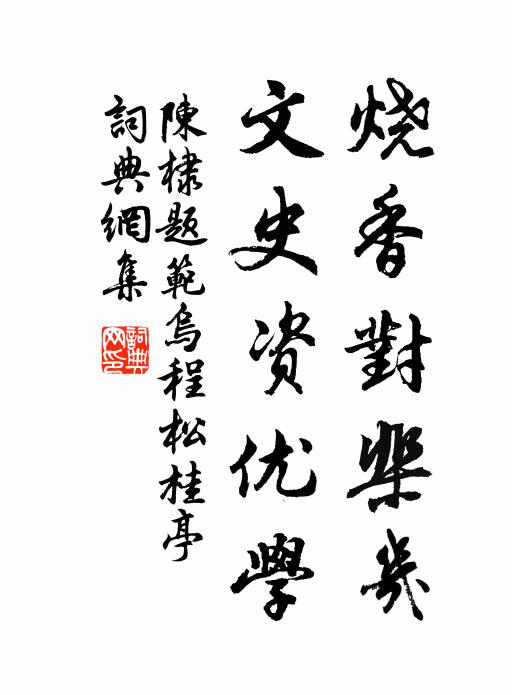 烧香對棐幾
文史资优學
陳棣题範烏程松桂亭
詞典網集
詞典网印